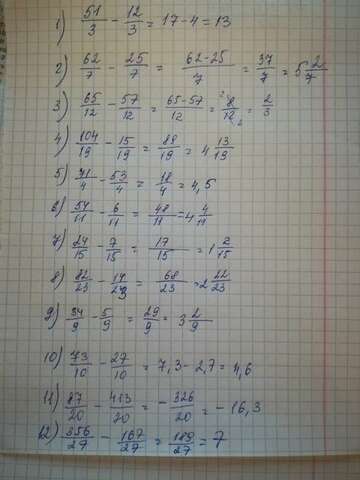 1) 51/3 - 12/3 = 17-4 = 13
2) 62/7 - 25/7 = 62-25/7 = 37/7 = 5 2/7
3) 65/12 - 57/12 = 65-57/12 = 8/12 = 2/3
4) 104/19 - 15/19 = 89/19 = 4 13/19
5) 71/4 - 53/4 = 18/4 = 4,5
6) 54/11 - 6/11 = 48/11 = 4 4/11
7) 24/15 - 7/15 = 17/15 = 1 2/15
8) 82/23 - 14/23 = 68/23 = 2 22/23
9) 34/9 - 5/9 = 29/9 = 3 2/9
10) 73/10 - 27/10 = 7,3 - 2,7 = 4,6
11) 87/20 - 413/20 = - 326/20 = - 16,3
12) 356/27 - 167/27 = 189/27 = 7